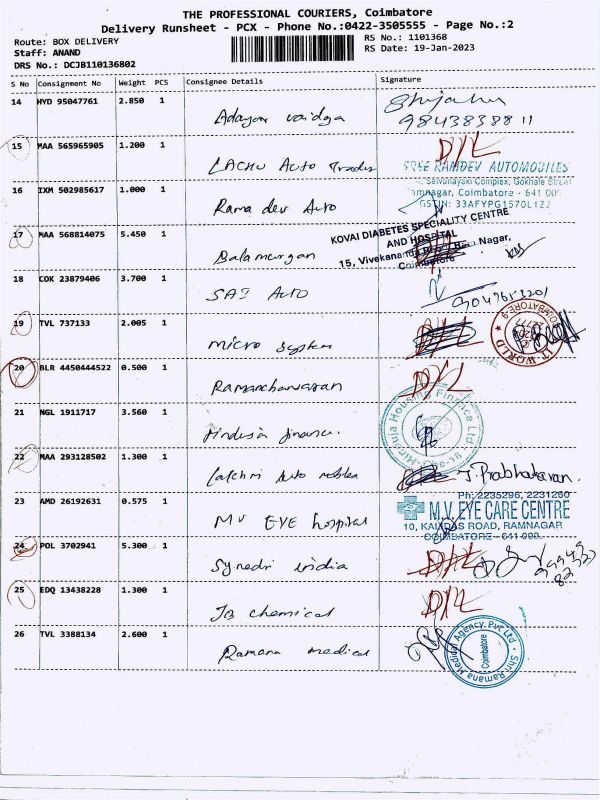 THE PROFESSIONAL COURIERS, Coimbatore
Delivery Runsheet - PCX - Phone No.:0422-3505555 - Page No.:2
Route: BOX DELIVERY
RS No.: 1101368
Staff: ANAND
RS Date: 19-Jan-2023
DRS No.: DCJB110136802
S No Consignment No Weight PCS Consignee Details Signature
14 HYD 95047761 2.850 1
Adayar vaidya
9843838811
15 MAA 565965905 1.200 1 D/L
LACHU Auto Trades SREE RAMDEV AUTOMOBILES
Selvanayaki Complex, Gokhale Street
16 IXM 502985617 1.000 1 Ramnagar, Coimbatore - 641 009
Rama dev Auto GSTIN: 33AFYPG1570L1Z2
17 MAA 568814075 5.450 1 KOVAI DIABETES SPECIALITY CENTRE
AND HOSPITAL
Balamurgan 15, Vivekananda Road, Ram Nagar,
Coimbatore
18 COK 23879406 3.700 1
SAI Auto
19 TVL 737133 2.005 1
micro system IT WORLD COIMBATORE-9
20 BLR 4450444522 0.500 1 D/L
Ramanchanaran
21 NGL 1911717 3.560 1
Hinduja finance. Hinduja Housing Finance Ltd
22 MAA 293128502 1.300 1
Lakshmi Auto mobiles J. Prabhakaran.
23 AMD 26192631 0.575 1 Ph: 2235296, 2231260
M.V. EYE CARE CENTRE
MV EYE hospital 10, KALIDAS ROAD, RAMNAGAR
COIMBATORE - 641 009.
24 POL 3702941 5.300 1 D/L
Synedri india
25 EDQ 13438228 1.300 1 D/L
JB chemical
26 TVL 3388134 2.600 1
Ramana medical Shri Ramana Medical Agency Pvt Ltd Coimbatore